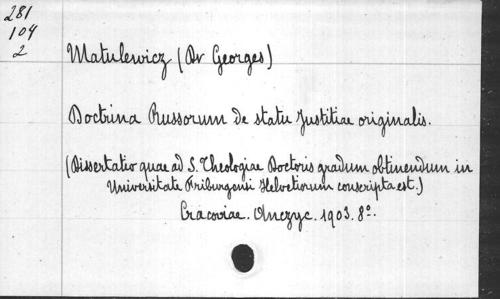 281
104
2
Matulewicz (Dr Georges)
Doctrina Russorum de statu Justitiae originalis.
(Dissertatio quae ad S. Theologiae Doctoris gradum obtinendum in
Universitate Friburgensi Helvetiorum conscripta est.)
Cracoviae. Anczyc. 1903. 8º.